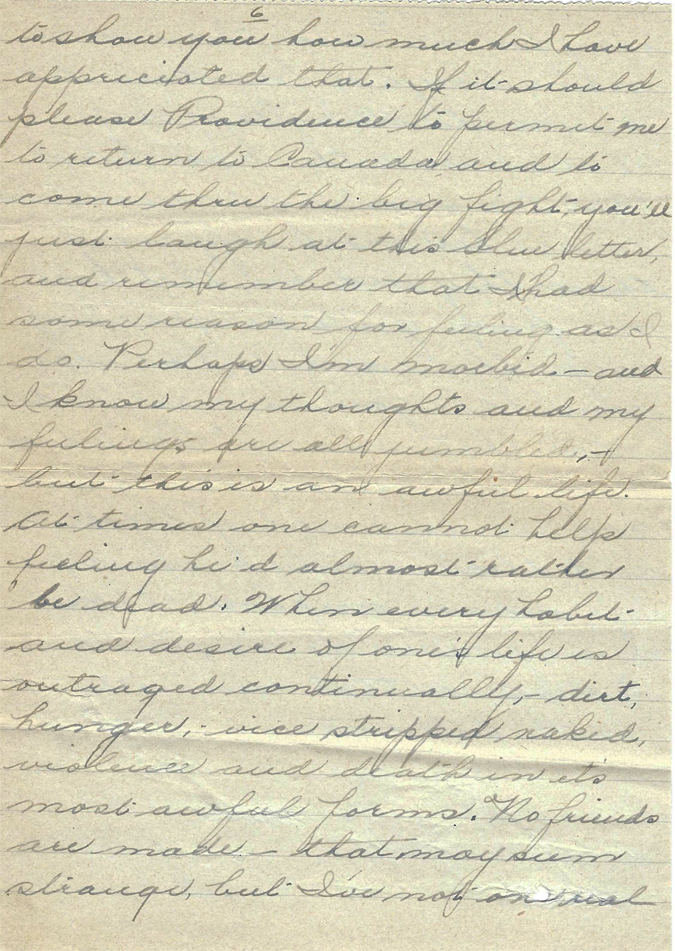 6
to show you how much I have
appriciated that. If it should
please Providence to permit me
to return to Canada and to
come thru the big fight, you'll
just laugh at this blue letter,
and remember that I had
some reason for feeling as I
do. Perhaps I'm morbid - and
I know my thoughts and my
feelings are all jumbled, -
but this is an awful life.
At times one cannot help
feeling he'd almost rather
be dead. When every habit
and desire of one's life is
outraged continually, - dirt,
hunger, - vice stripped naked,
violence and death in its
most awful forms. No friends
are made - that may seem
strange, but I've not one real